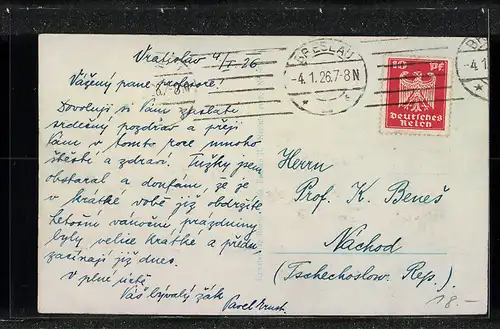 Vratislav 4/I. 26
Vážený pane profesore!
Dovoluji si Vám zaslati
srdečný pozdrav a přeji
Vám v tomto roce mnoho
štěstí a zdraví. Tužky jsem
obstaral a doufám, že je
v krátké době již obdržíte.
Letošní vánoční prázdniny
byly velice krátké a
začínají již dnes.
V plné úctě
Váš bývalý žák
Pavel
BRESLAU
-4.1.26.7-8N
10 Pf.
Deutsches
Reich
Herrn
Prof. K. Beneš
Náchod
(Tschechoslow. Rep.)
18.-